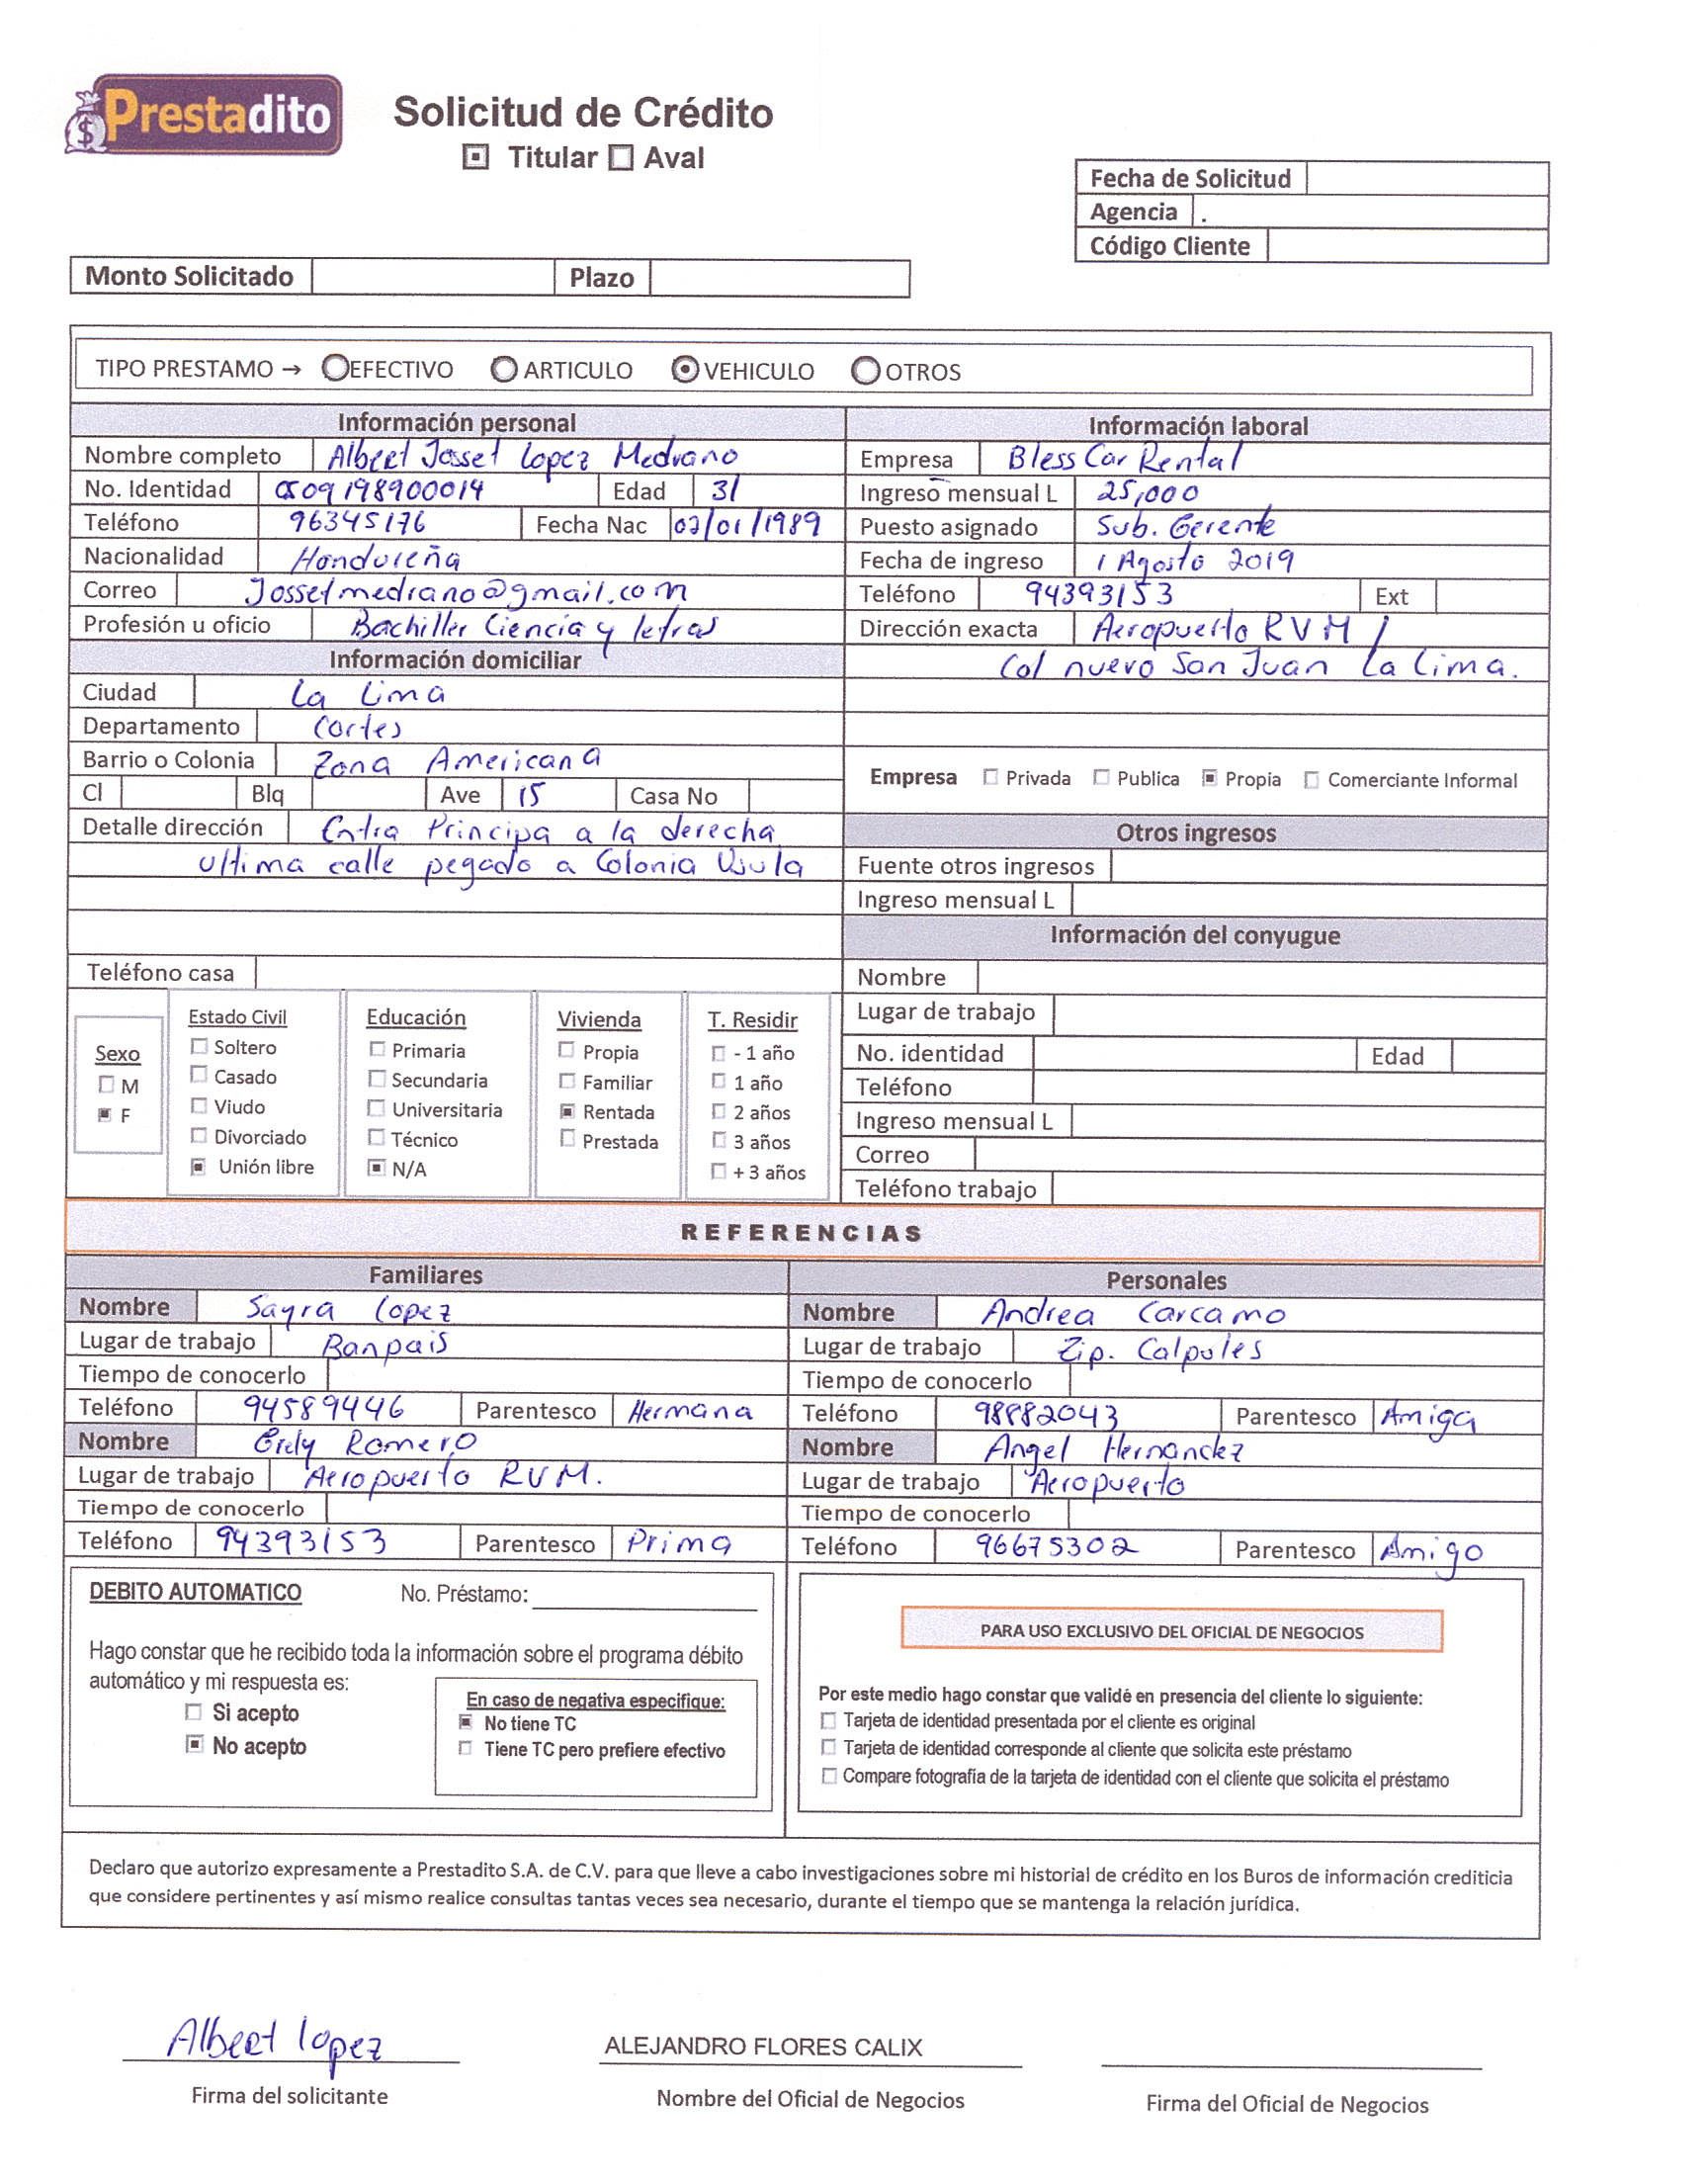 Prestadito
$
Solicitud de Crédito
Titular Aval
Fecha de Solicitud
Agencia .
Código Cliente
Monto Solicitado Plazo
TIPO PRESTAMO → EFECTIVO ARTICULO VEHICULO OTROS
Información personal
Nombre completo Albert Josset Lopez Medrano
No. Identidad 0509198900014 Edad 31
Teléfono 96345176 Fecha Nac 02/01/1989
Nacionalidad Hondureña
Correo Jossetmedrano@gmail.com
Profesión u oficio Bachiller Ciencia y letras
Información domiciliar
Ciudad La Lima
Departamento Cortes
Barrio o Colonia Zona Americana
Cl Blq Ave 15 Casa No
Detalle dirección Entra Principa a la derecha
ultima calle pegado a Colonia Usula
Teléfono casa
Sexo
M
F
Estado Civil
Soltero
Casado
Viudo
Divorciado
Unión libre
Educación
Primaria
Secundaria
Universitaria
Técnico
N/A
Vivienda
Propia
Familiar
Rentada
Prestada
T. Residir
- 1 año
1 año
2 años
3 años
+ 3 años
Información laboral
Empresa Bless Car Rental
Ingreso mensual L 25,000
Puesto asignado Sub. Gerente
Fecha de ingreso 1 Agosto 2019
Teléfono 94393153 Ext
Dirección exacta Aeropuerto RVM /
Col nuevo San Juan La Lima.
Empresa Privada Publica Propia Comerciante Informal
Otros ingresos
Fuente otros ingresos
Ingreso mensual L
Información del conyugue
Nombre
Lugar de trabajo
No. identidad Edad
Teléfono
Ingreso mensual L
Correo
Teléfono trabajo
REFERENCIAS
Familiares
Nombre Sayra Lopez
Lugar de trabajo Banpais
Tiempo de conocerlo
Teléfono 94589446 Parentesco Hermana
Nombre Romero
Lugar de trabajo Aeropuerto RVM.
Tiempo de conocerlo
Teléfono 94393153 Parentesco Prima
Personales
Nombre Andrea Carcamo
Lugar de trabajo Zip. Calpules
Tiempo de conocerlo
Teléfono 98882043 Parentesco Amiga
Nombre Angel Hernandez
Lugar de trabajo Aeropuerto
Tiempo de conocerlo
Teléfono 96675302 Parentesco Amigo
DEBITO AUTOMATICO No. Préstamo:
Hago constar que he recibido toda la información sobre el programa débito
automático y mi respuesta es:
Si acepto
No acepto
En caso de negativa especifique:
No tiene TC
Tiene TC pero prefiere efectivo
PARA USO EXCLUSIVO DEL OFICIAL DE NEGOCIOS
Por este medio hago constar que validé en presencia del cliente lo siguiente:
Tarjeta de identidad presentada por el cliente es original
Tarjeta de identidad corresponde al cliente que solicita este préstamo
Compare fotografía de la tarjeta de identidad con el cliente que solicita el préstamo
Declaro que autorizo expresamente a Prestadito S.A. de C.V. para que lleve a cabo investigaciones sobre mi historial de crédito en los Buros de información crediticia
que considere pertinentes y así mismo realice consultas tantas veces sea necesario, durante el tiempo que se mantenga la relación jurídica.
Albert Lopez
Firma del solicitante
ALEJANDRO FLORES CALIX
Nombre del Oficial de Negocios
Firma del Oficial de Negocios